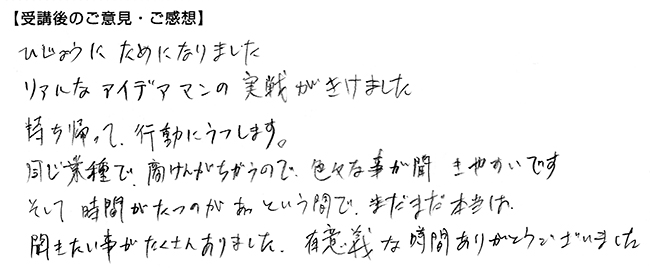 【受講後のご意見・ご感想】
ひじょうに ためになりました
リアルな アイデアマンの 実戦がきけました
持ち帰って、行動にうつします。
同じ業種で、商けんがちがうので、色々な事が聞きやすいです
そして 時間がたつのが あっという間で、まだまだ本当は、
聞きたい事がたくさんありました、有意義な時間ありがとうございました